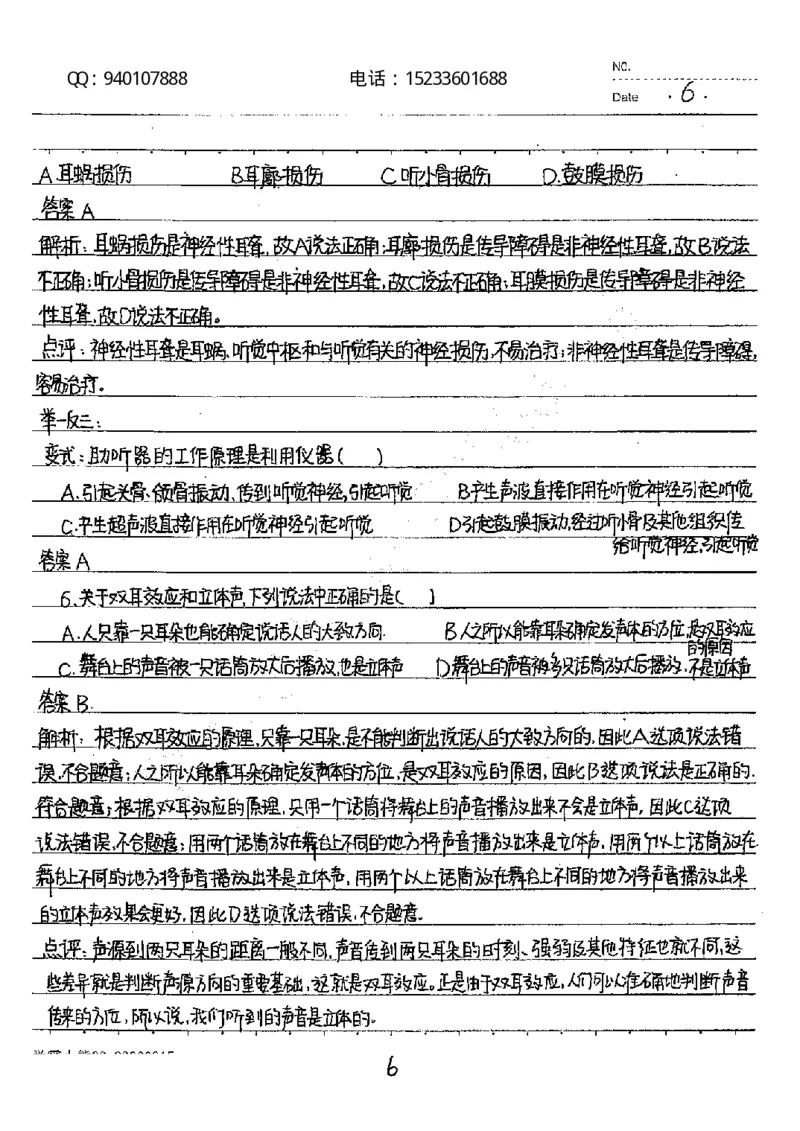 QQ：940107888 电话：15233601688
NO.
Date ·6·
A.耳蜗损伤 B.耳廓损伤 C.听小骨损伤 D.鼓膜损伤
答案 A
解析：耳蜗损伤是神经性耳聋，故A说法正确；耳廓损伤是传导障碍是非神经性耳聋，故B说法
不正确；听小骨损伤是传导障碍是非神经性耳聋，故C说法不正确；耳膜损伤是传导障碍是非神经
性耳聋，故D说法不正确。
点评：神经性耳聋是耳蜗、听觉中枢和与听觉有关的神经损伤，不易治疗；非神经性耳聋是传导障碍，
容易治疗。
举一反三：
变式：助听器的工作原理是利用仪器（ ）
A.引起头骨、颌骨振动，传到听觉神经，引起听觉 B.产生声波直接作用在听觉神经引起听觉
C.产生超声波直接作用在听觉神经引起听觉 D.引起鼓膜振动，经过听小骨及其他组织传
给听觉神经，引起听觉
答案 A
6.关于双耳效应和立体声，下列说法中正确的是（ ）
A.人只靠一只耳朵也能确定说话人的大致方向. B.人之所以能靠耳朵确定发声体的方位，是双耳效应
的原因
C.舞台上的声音被一只话筒放大后播放，也是立体声 D.舞台上的声音被多只话筒放大后播放，不是立体声
答案 B.
解析：根据双耳效应的原理，只靠一只耳朵，是不能判断出说话人的大致方向的，因此A选项说法错
误，不合题意；人之所以能靠耳朵确定发声体的方位，是双耳效应的原因，因此B选项说法是正确的.
符合题意；根据双耳效应的原理，只用一个话筒将舞台上的声音播放出来不会是立体声，因此C选项
说法错误，不合题意；用两个话筒放在舞台上不同的地方将声音播放出来是立体声，用两个以上话筒放在
舞台上不同的地方将声音播放出来是立体声，用两个以上话筒放在舞台上不同的地方将声音播放出来
的立体声效果会更好，因此D选项说法错误，不合题意。
点评：声源到两只耳朵的距离一般不同，声音传到两只耳朵的时刻、强弱及其他特征也就不同，这
些差异就是判断声源方向的重要基础，这就是双耳效应。正是由于双耳效应，人们可以准确地判断声音
传来的方位，所以说，我们听到的声音是立体的。
6